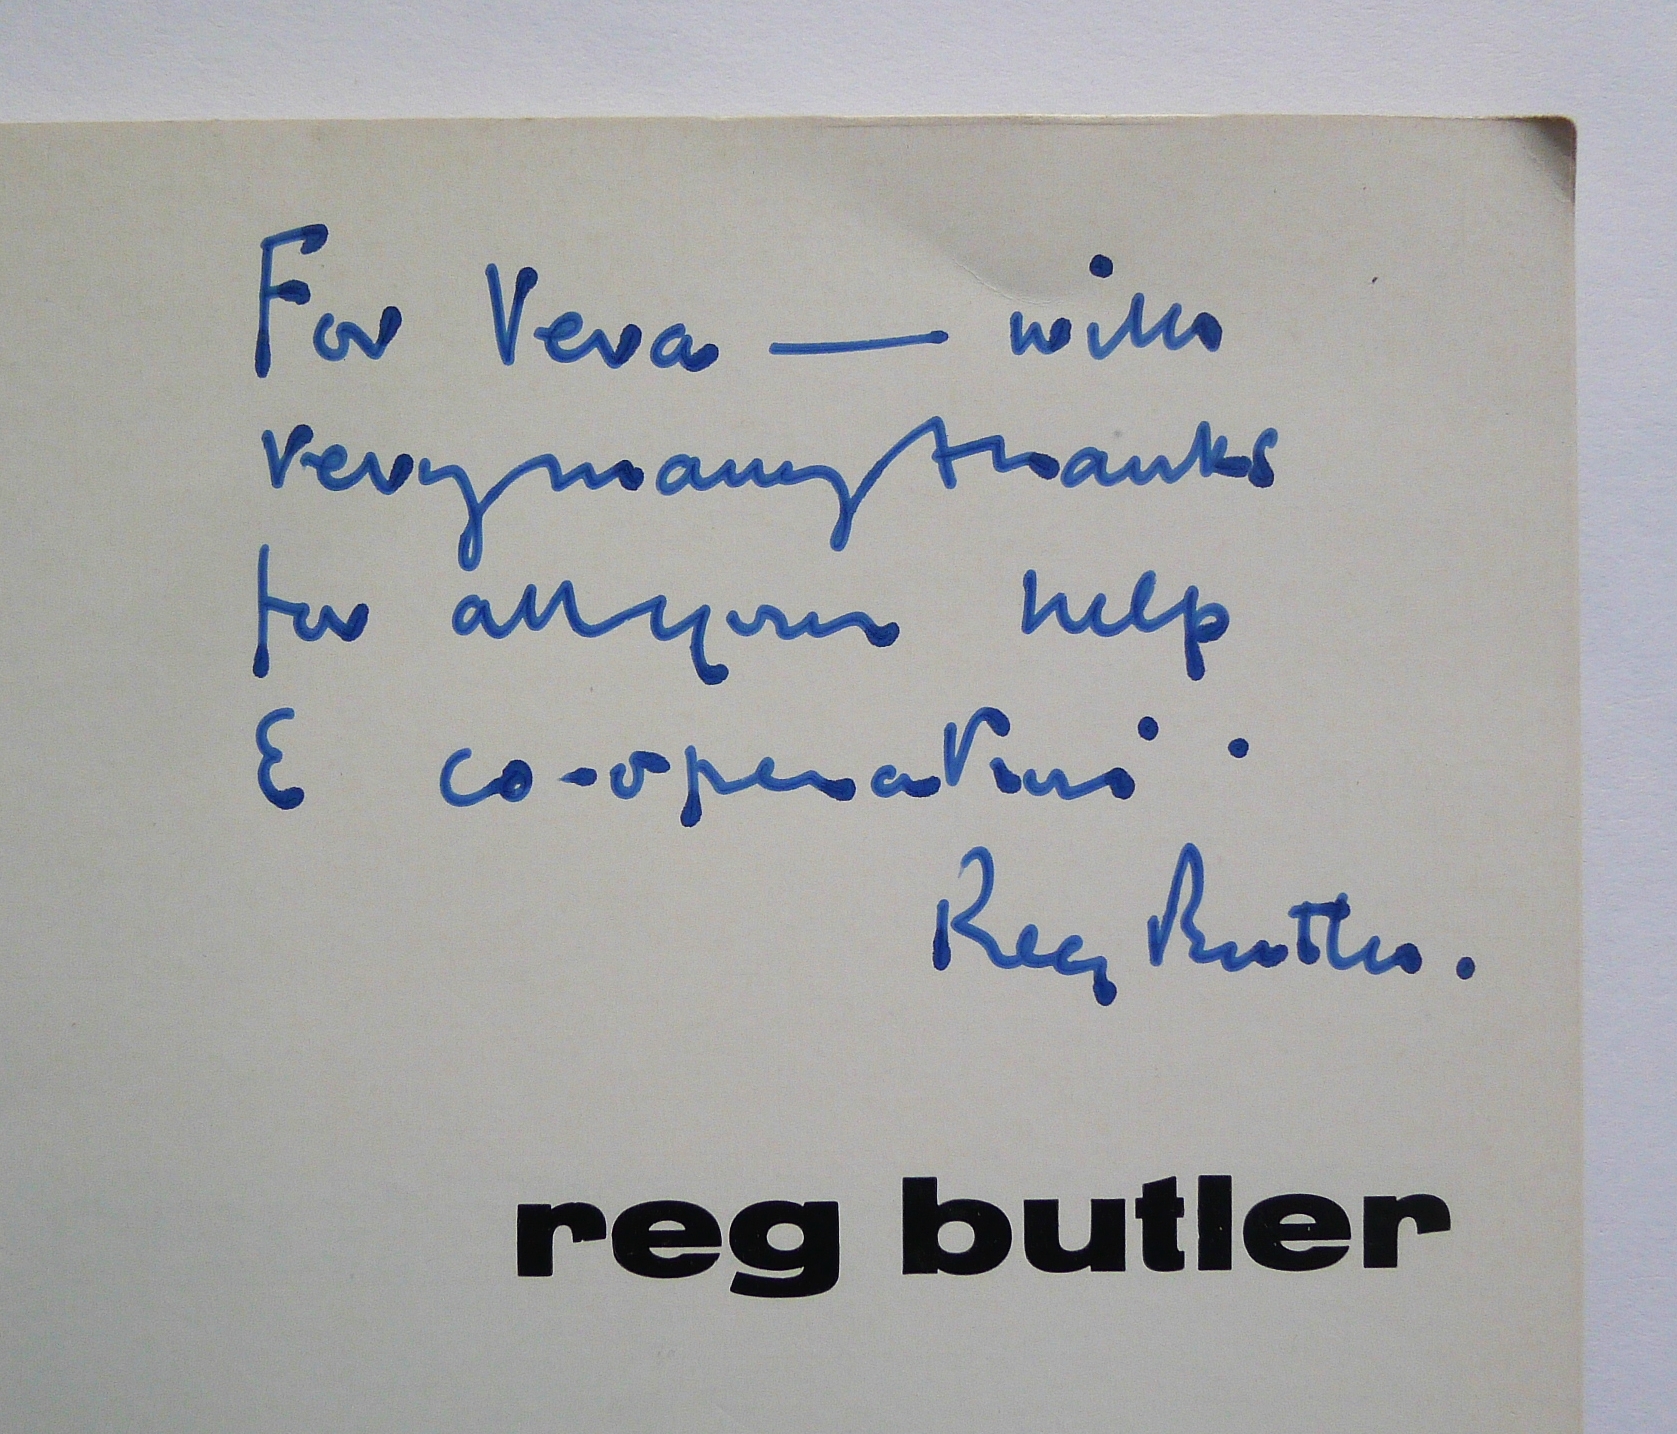 For Vera — with
very many thanks
for all your help
& co-operation.
Reg Butler.
reg butler